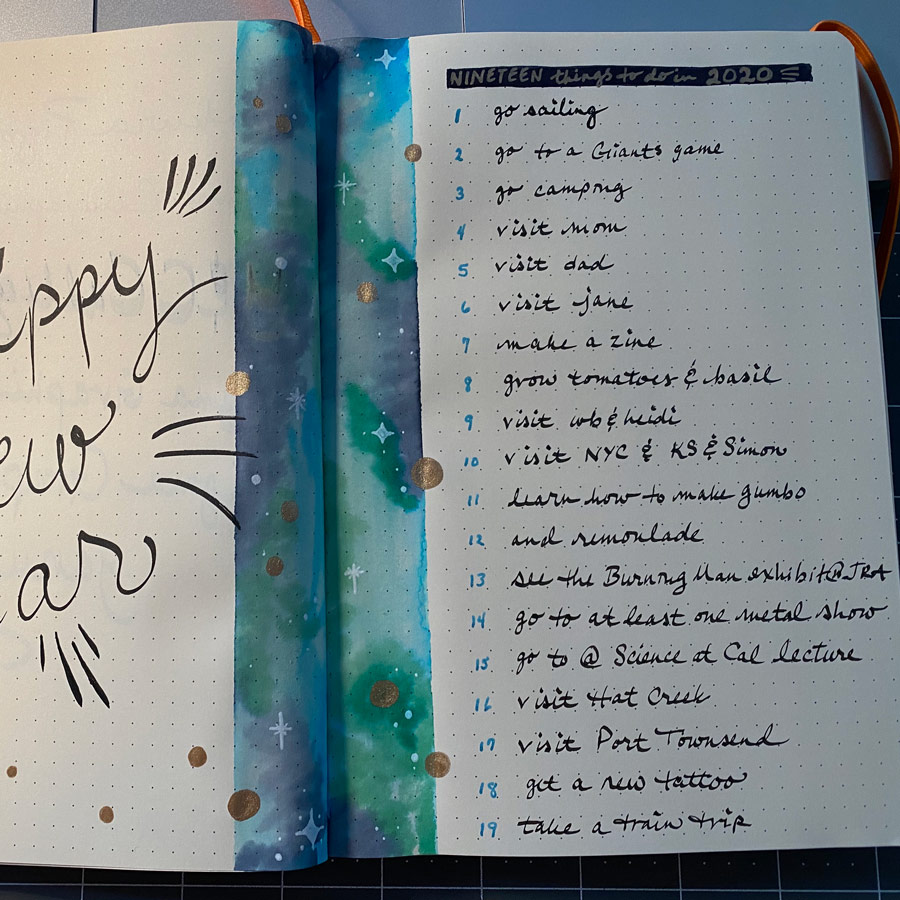 appy
ew
ear
NINETEEN things to do in 2020
1 go sailing
2 go to a Giants game
3 go camping
4 visit mom
5 visit dad
6 visit jane
7 make a zine
8 grow tomatoes & basil
9 visit wb & heidi
10 visit NYC & KS & Simon
11 learn how to make gumbo
12 and remoulade
13 see the Burning Man exhibit @
14 go to at least one metal show
15 go to @ Science at Cal lecture
16 visit Hat Creek
17 visit Port Townsend
18 get a new tattoo
19 take a train trip